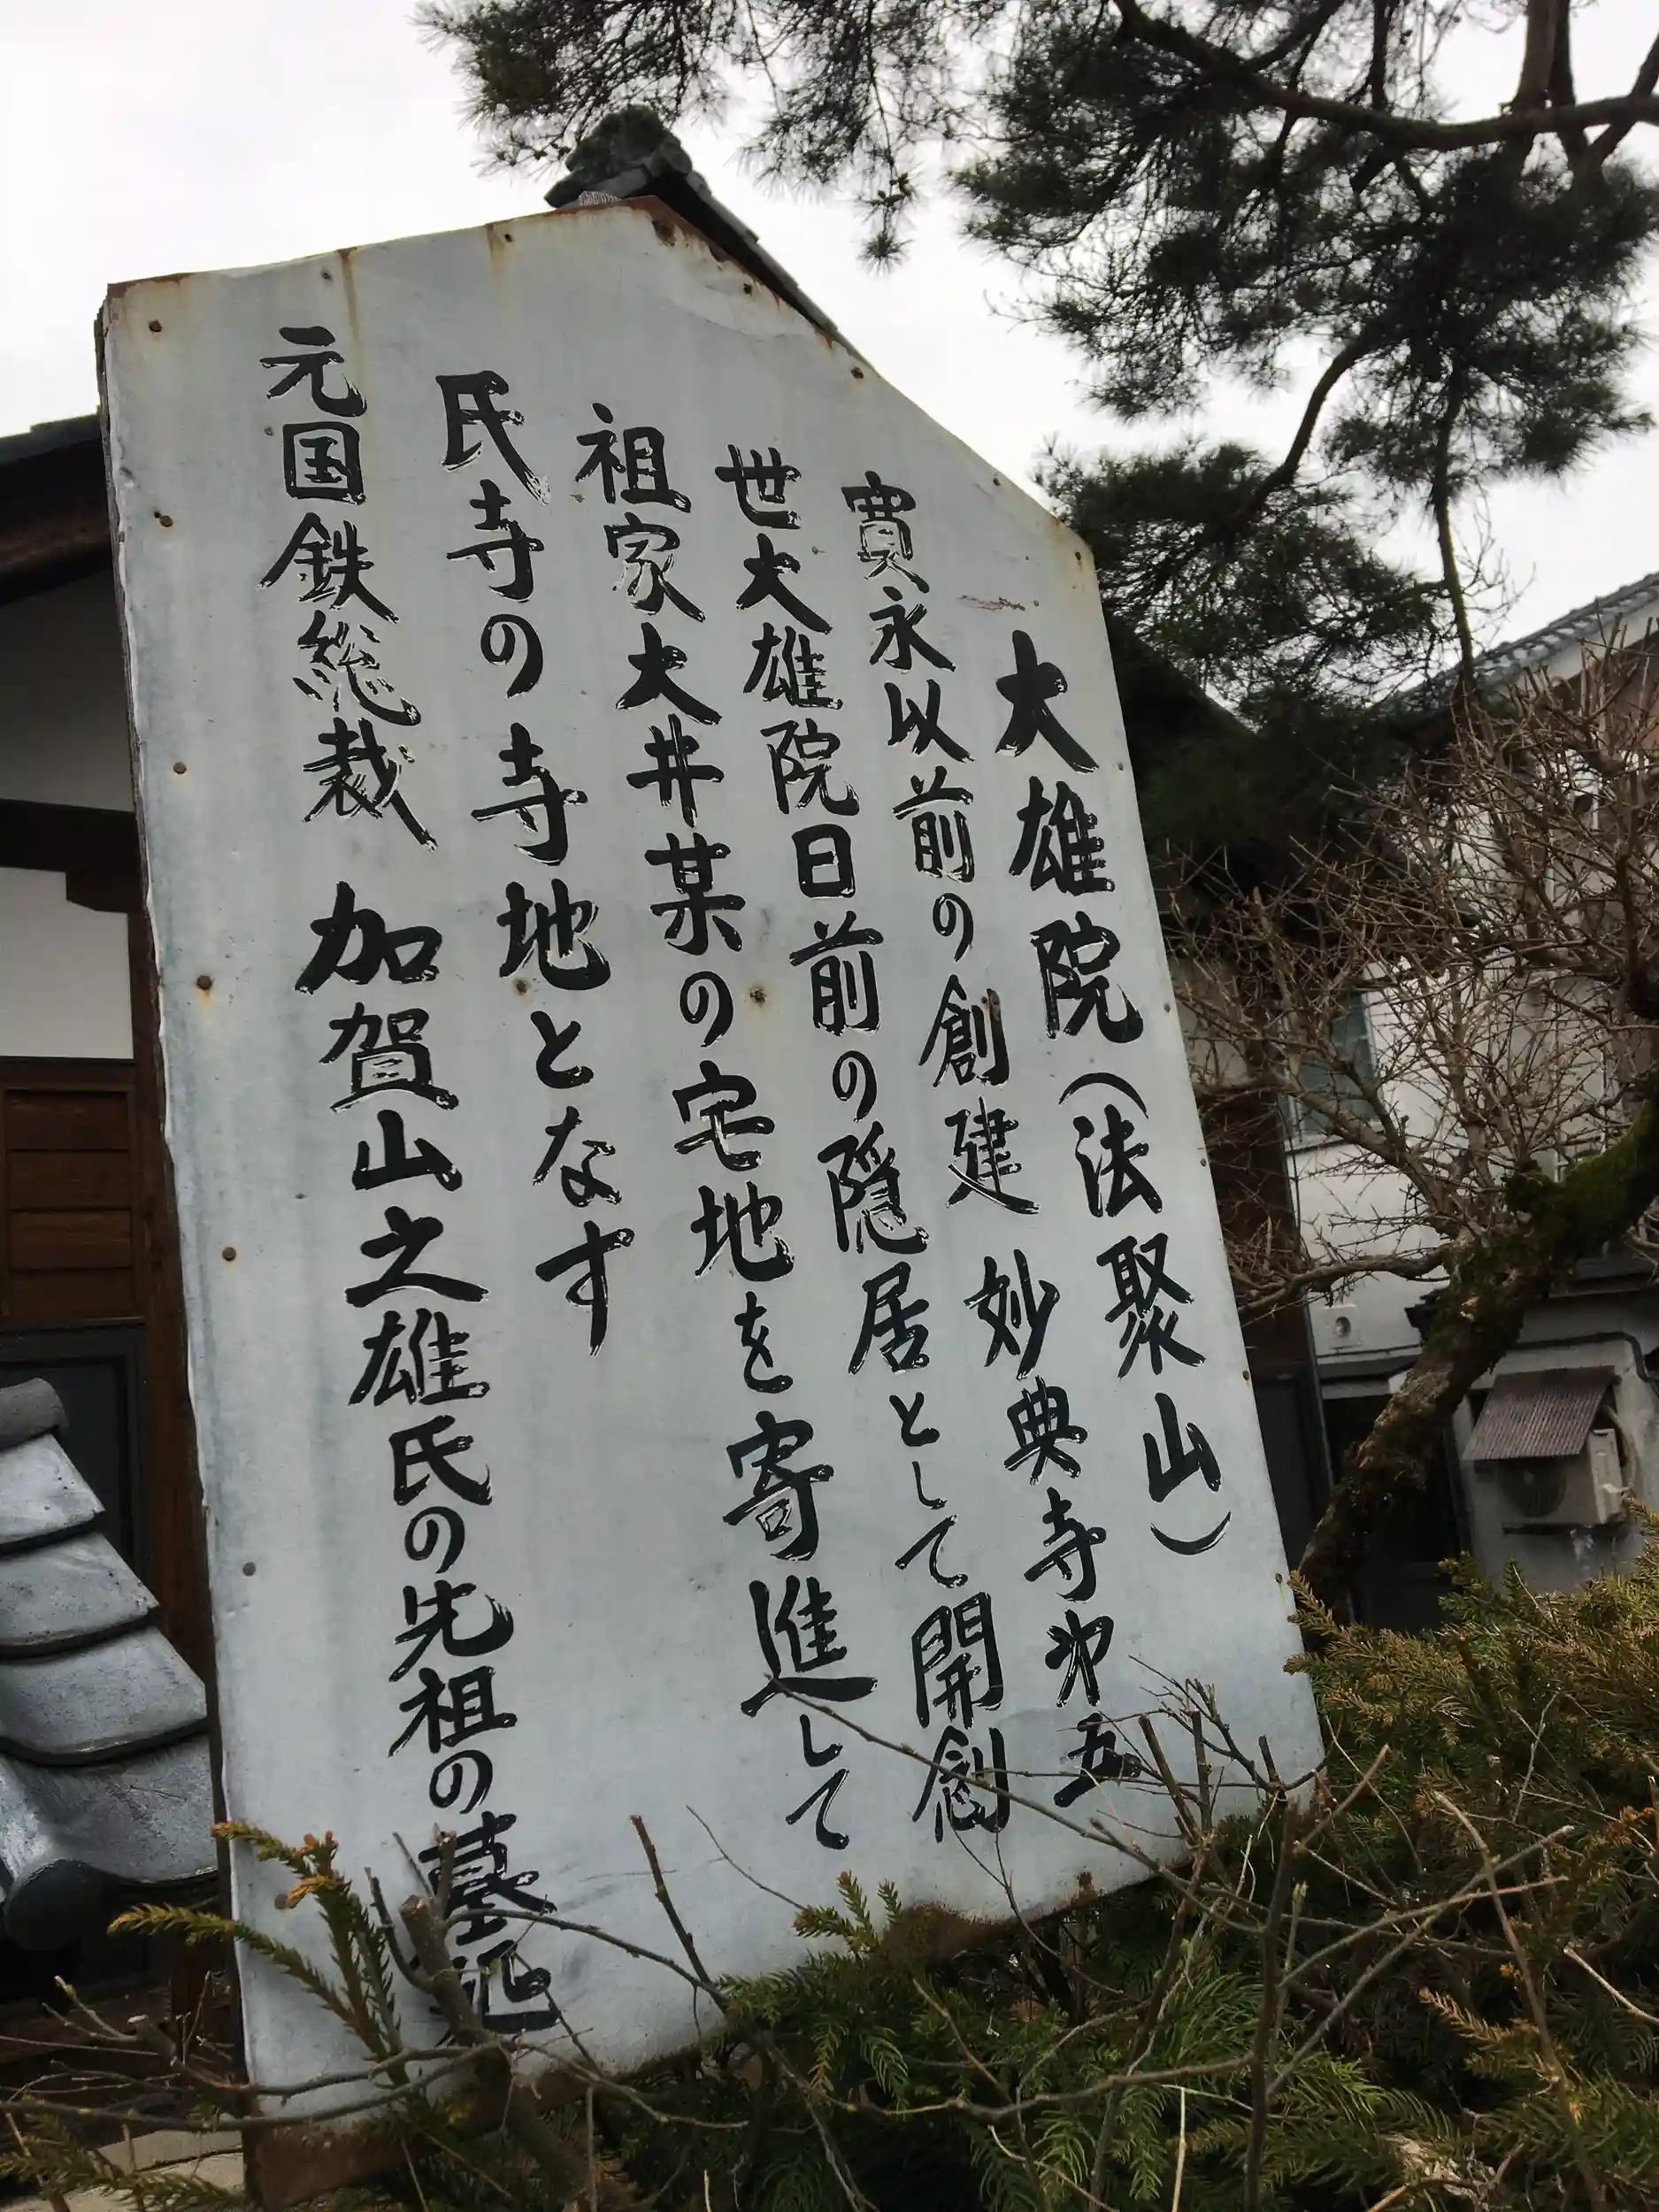 大雄院（法聚山）
寛永以前の創建 妙典寺㐧五
世大雄院日前の隠居として開創
祖家大井某の宅地を寄進して
氏寺の寺地となす
元国鉄総裁 加賀山之雄氏の先祖の墓地